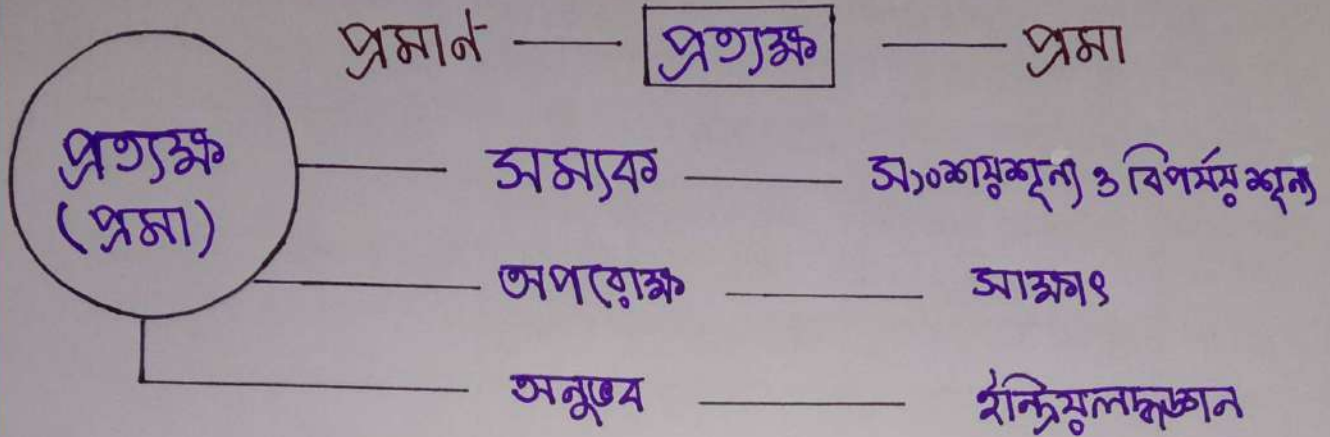 প্রমান — প্রত্যক্ষ — প্রমা
প্রত্যক্ষ
(প্রমা)
সম্যক — সংশয়শূন্য ও বিপর্যয়শূন্য
অপরোক্ষ — সাক্ষাৎ
অনুভব — ইন্দ্রিয়লব্ধজ্ঞান